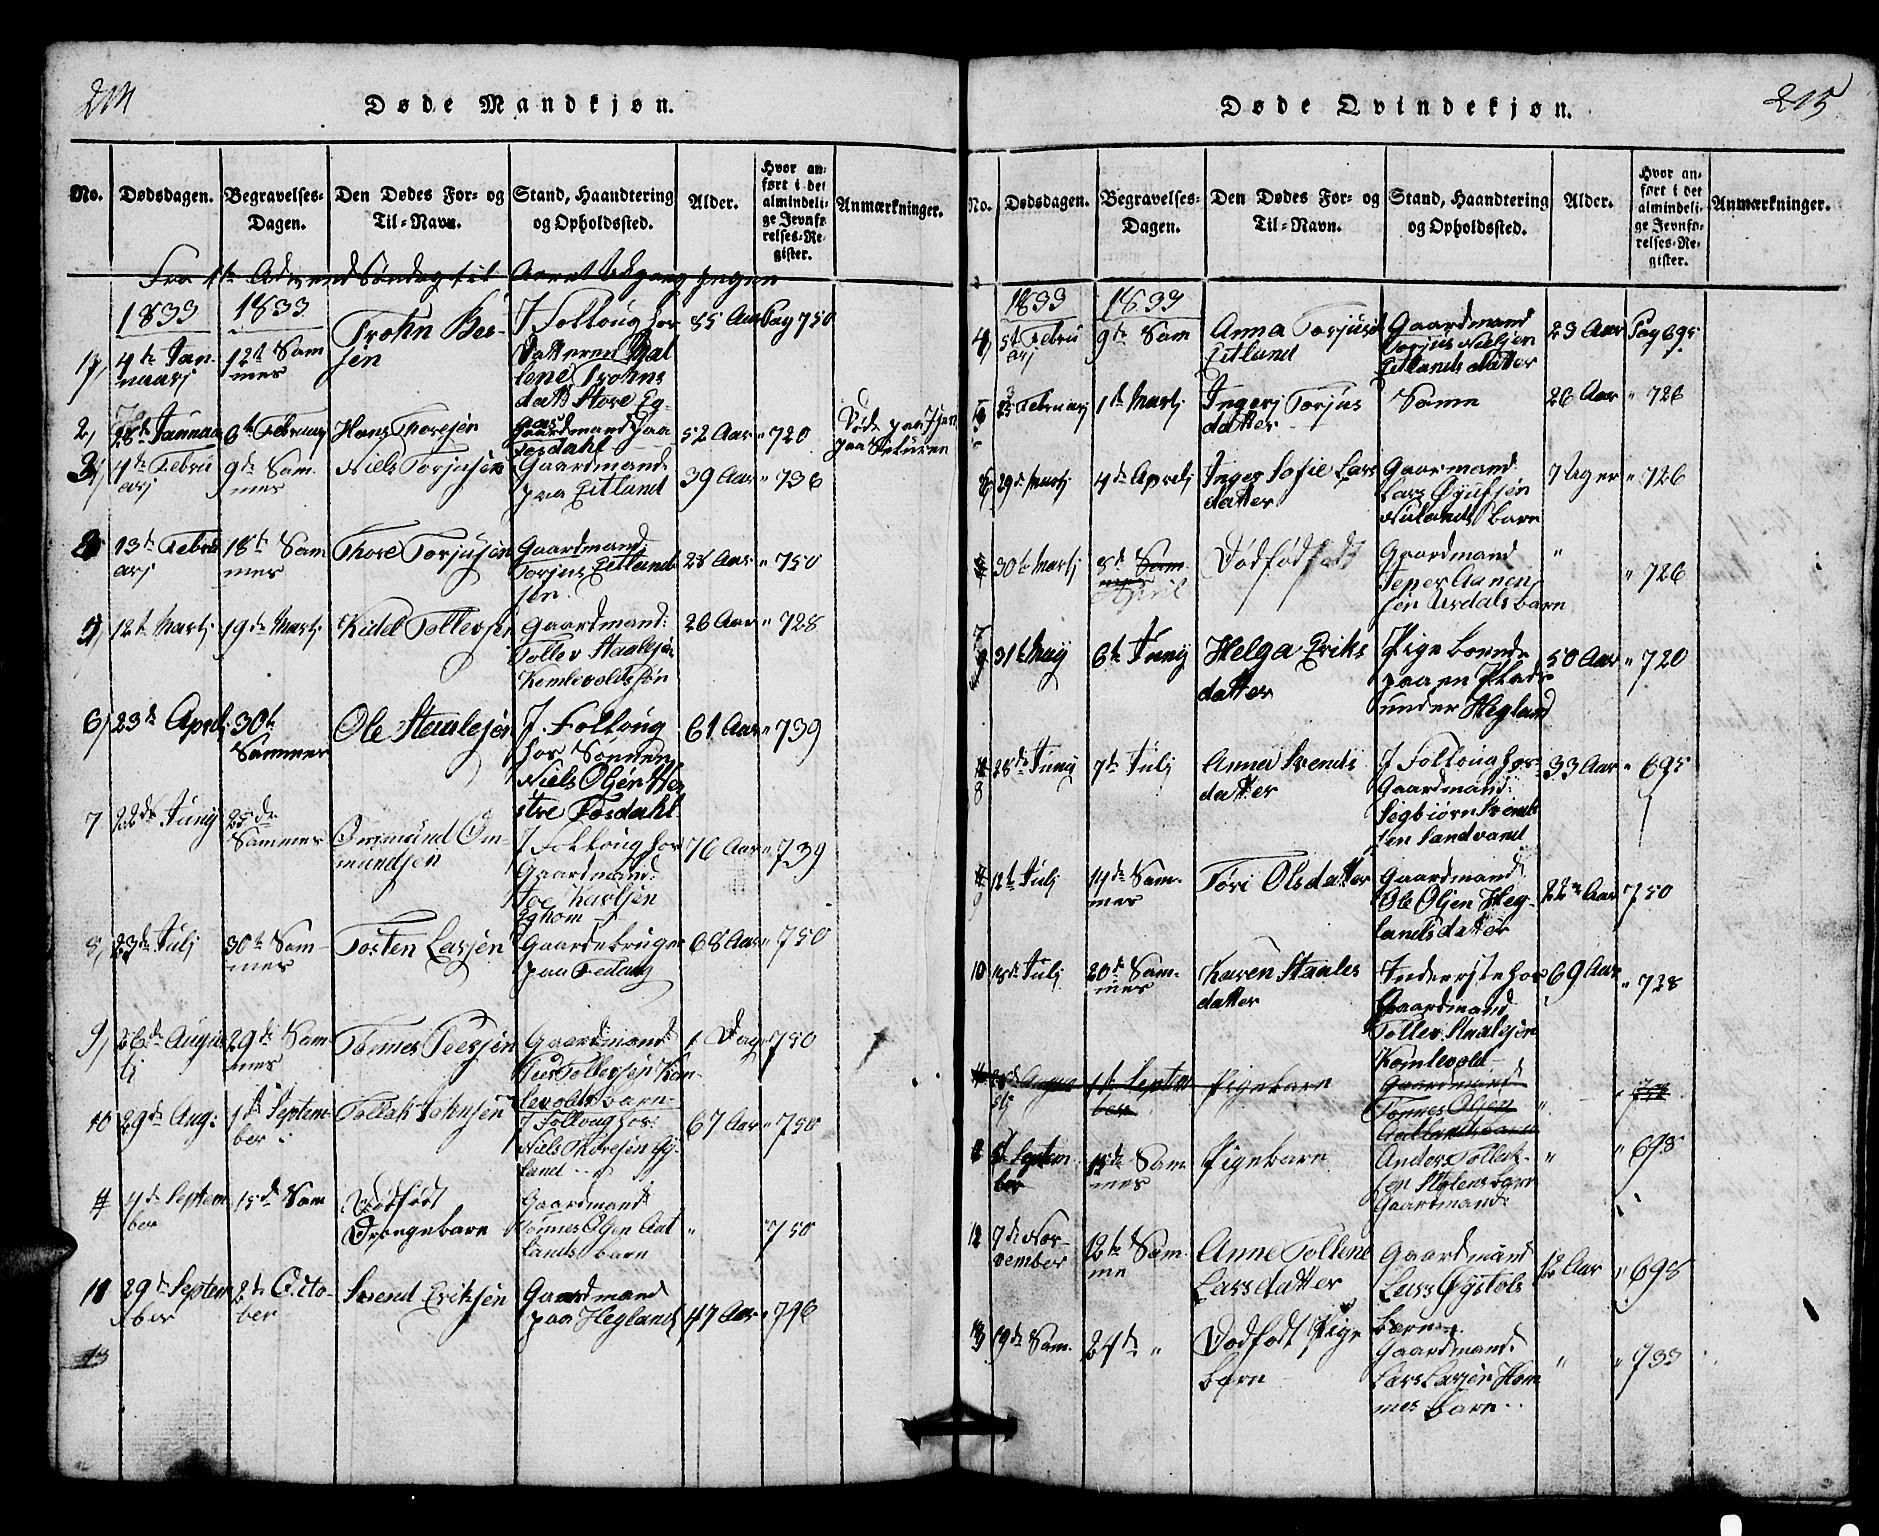 214
Døde Mandkjøn.
No. Dødsdagen. Begravelses-Dagen. Den Dødes For- og Til-Navn. Stand, Haandtering og Opholdssted. Alder. Hvor anført i det almindelige Jevnførelses-Register. Anmærkninger.
Fra 1te Advend Søndag til Aaret Udgang Ingen
1833 1833
1, 4de Januarj 12te Sammes Trohn Bessen J Folloug hos Datteren Mallene Trohnsdatt Store Eg- 85 Aar Pag 750
2, 28de Januar 6te Februarj Hans Thoresen Gaardmand paa Fosdahl 52 Aar " 720 Døde paa Isen paa Returen
3, 1te Februarj 9de Sammes Niels Torjusen Gaardmand paa Eitland 39 Aar " 736
13te Februarj 18te Sammes Thore Torjusen Gaardmand Torjus Eitlands Søn. 28 Aar " 750
5, 12te Martj 19de Martj Kidel Tollevsen Gaardmand: Tollev Staalesen Komlevolds søn 26 Aar " 728
6, 23de Aprilj 30te Sammes Ole Staalesen J. Folloug hos Sønnen Niels Olsen Westre Fosdahl 61 Aar " 739
7 22de Junij 25de Sammes Ommund Ommundsen J Follough hos Gaardmand: Joe Karlsen Eghom 76 Aar " 739
8, 23de Julj 30te Sammes Tosten Larsen Gaardebruger paa Fedaug 68 Aar " 750
9, 26de Augusti 29de Sammes Tønnes Peersen Gaardmand: Peer Tollevsen Komlevolds barn 1 Dag " 750
10 29de Aug: 1te September: Tollak Johnsen J Follough hos: Niels Thoresen Eyland 67 Aar " 750
11 4de September 15de Sam Dødfødt Drengebarn Gaardmand: Tønnes Olsen Aatlands barn " " 750
29de September 2de October Svend Eriksen Gaardmand paa Hegland 47 Aar " 746
13
215
Døde Qvindekjøn.
No. Dødsdagen. Begravelses-Dagen. Den Dødes For- og Til-Navn. Stand, Haandtering og Opholdssted. Alder. Hvor anført i det almindelige Jevnførelses-Register. Anmærkninger.
1833 1833
4, 5te Februarj 9de Sam Anna Torjusd Eitland Gaardmand Torjus Nielsen Eitlands datter 23 Aar Pag 695
Februarj 1te Martj Ingerj Torjusdatter Samme 26 Aar " 726
6, 29de Martj 4de Aprilj Inger Sofie Larsdatter Gaarmand Lars Øyufsen Nulands barn 7 Uger " 726
30te Martj 8de Sammes April Dødfødt Gaardmand Jeper Aanensen Ursdals barn " " 726
31te May 6te Junij Helga Eriksdatter Pige boende paa en Plads under Hegland 50 Aar " 720
8 28de Junij 7de Julj Anna Svendsdatter J Follough hos Gaardmand: Sigbiørn Svendsen Sandvand 33 Aar " 695
9 12te Julj 14de Sammes Tøri Olsdatter Gaardmand: Ole Olsen Heglands datter 22 Aar 750
10 18de Julj 20de Sammes Karen Staalesdatter Inderste hos Gaardmand Tollev Staalesen Komlevold 69 Aar " 728
Augusti 1te September Pigebarn Gaardmand Tønnes Olsen Aatlands barn "
September 15de Sammes Pigebarn Anders Tollaksen Stølens barn Gaardmand: " " 698
12 7de November 12te Samme Anne Tolline Larsdatter Gaardmand Lars Øystols Barn 12 Aar " 698
13 19de Sam. 24de " Dødfødt Pige barn Gaardmand: Lars Larsen Hommes barn.. " " 733